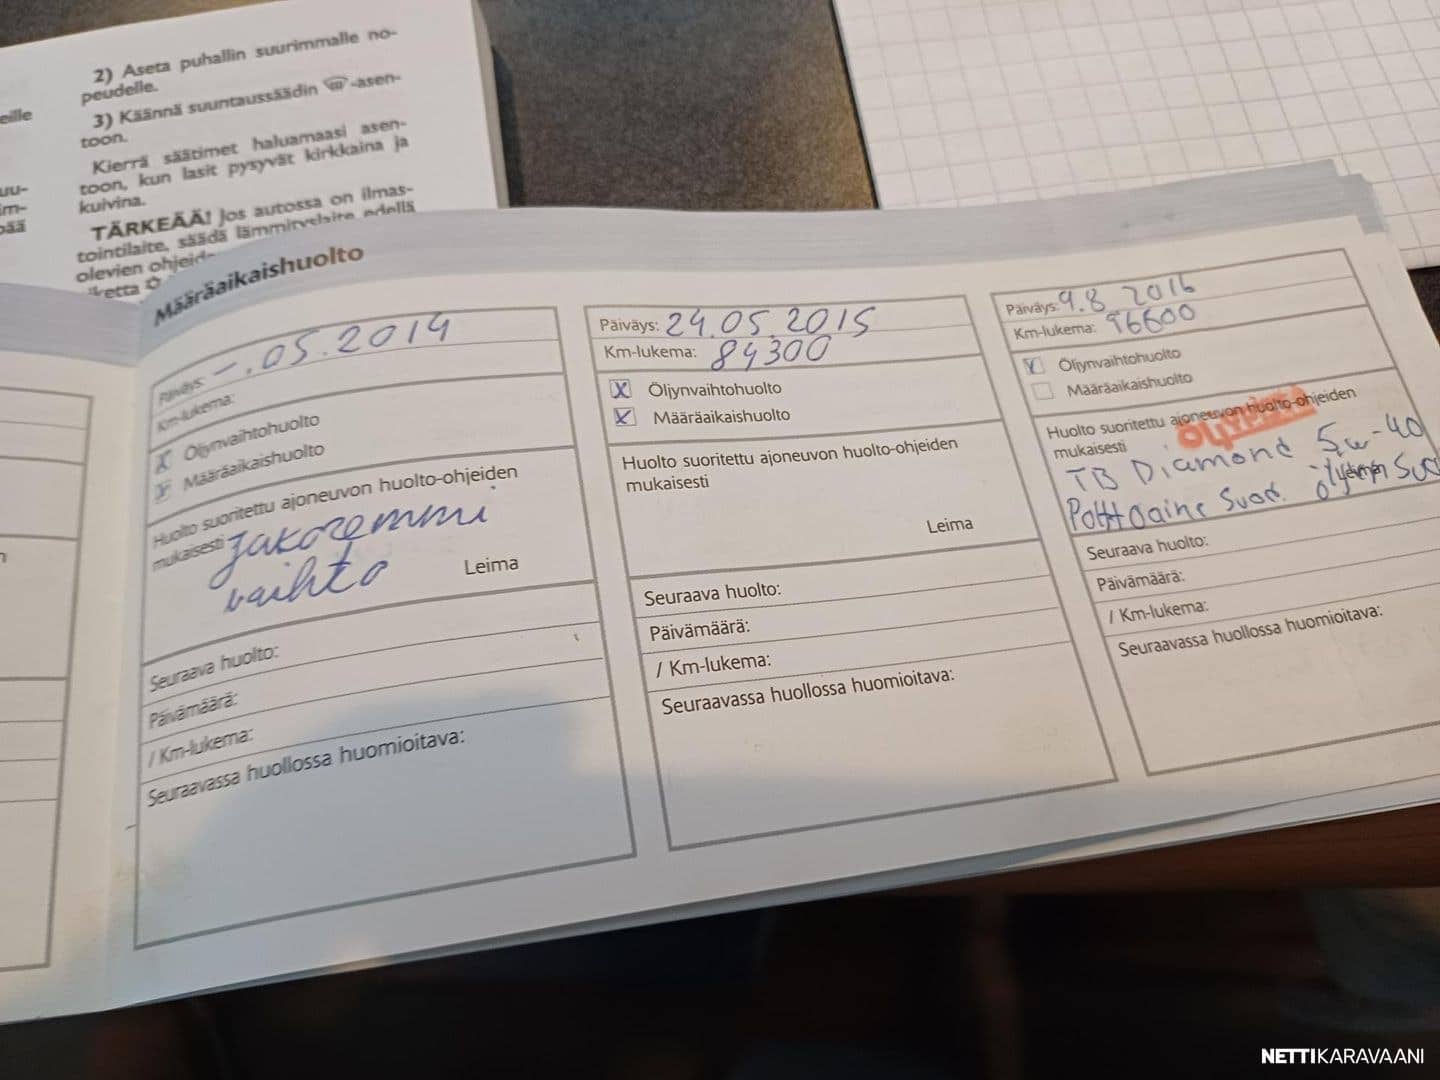 2) Aseta puhallin suurimmalle no-
peudelle.
3) Käännä suuntaussäädin -asen-
toon.
Kierrä säätimet haluamaasi asen-
toon, kun lasit pysyvät kirkkaina ja
kuivina.
TÄRKEÄÄ! Jos autossa on ilmas-
tointilaite, säädä lämmityslaite edellä
olevien ohjeid
iketta
eille
uu-
im-
pää
Määräaikaishuolto
Päiväys: -.05.2014
Km-lukema:
x Öljynvaihtohuolto
x Määräaikaishuolto
Huolto suoritettu ajoneuvon huolto-ohjeiden
mukaisesti Jakoremmi
vaihto
Leima
Seuraava huolto:
Päivämäärä:
/ Km-lukema:
Seuraavassa huollossa huomioitava:
Päiväys: 24.05.2015
Km-lukema: 84300
x Öljynvaihtohuolto
x Määräaikaishuolto
Huolto suoritettu ajoneuvon huolto-ohjeiden
mukaisesti
Leima
Seuraava huolto:
Päivämäärä:
/ Km-lukema:
Seuraavassa huollossa huomioitava:
Päiväys: 9.8.2016
Km-lukema: 96600
x Öljynvaihtohuolto
Määräaikaishuolto
Huolto suoritettu ajoneuvon huolto-ohjeiden
mukaisesti
TB Diamond 5w-40
Polttoaine Suod.
Seuraava huolto:
Päivämäärä:
/ Km-lukema:
Seuraavassa huollossa huomioitava:
NETTIKARAVAANI